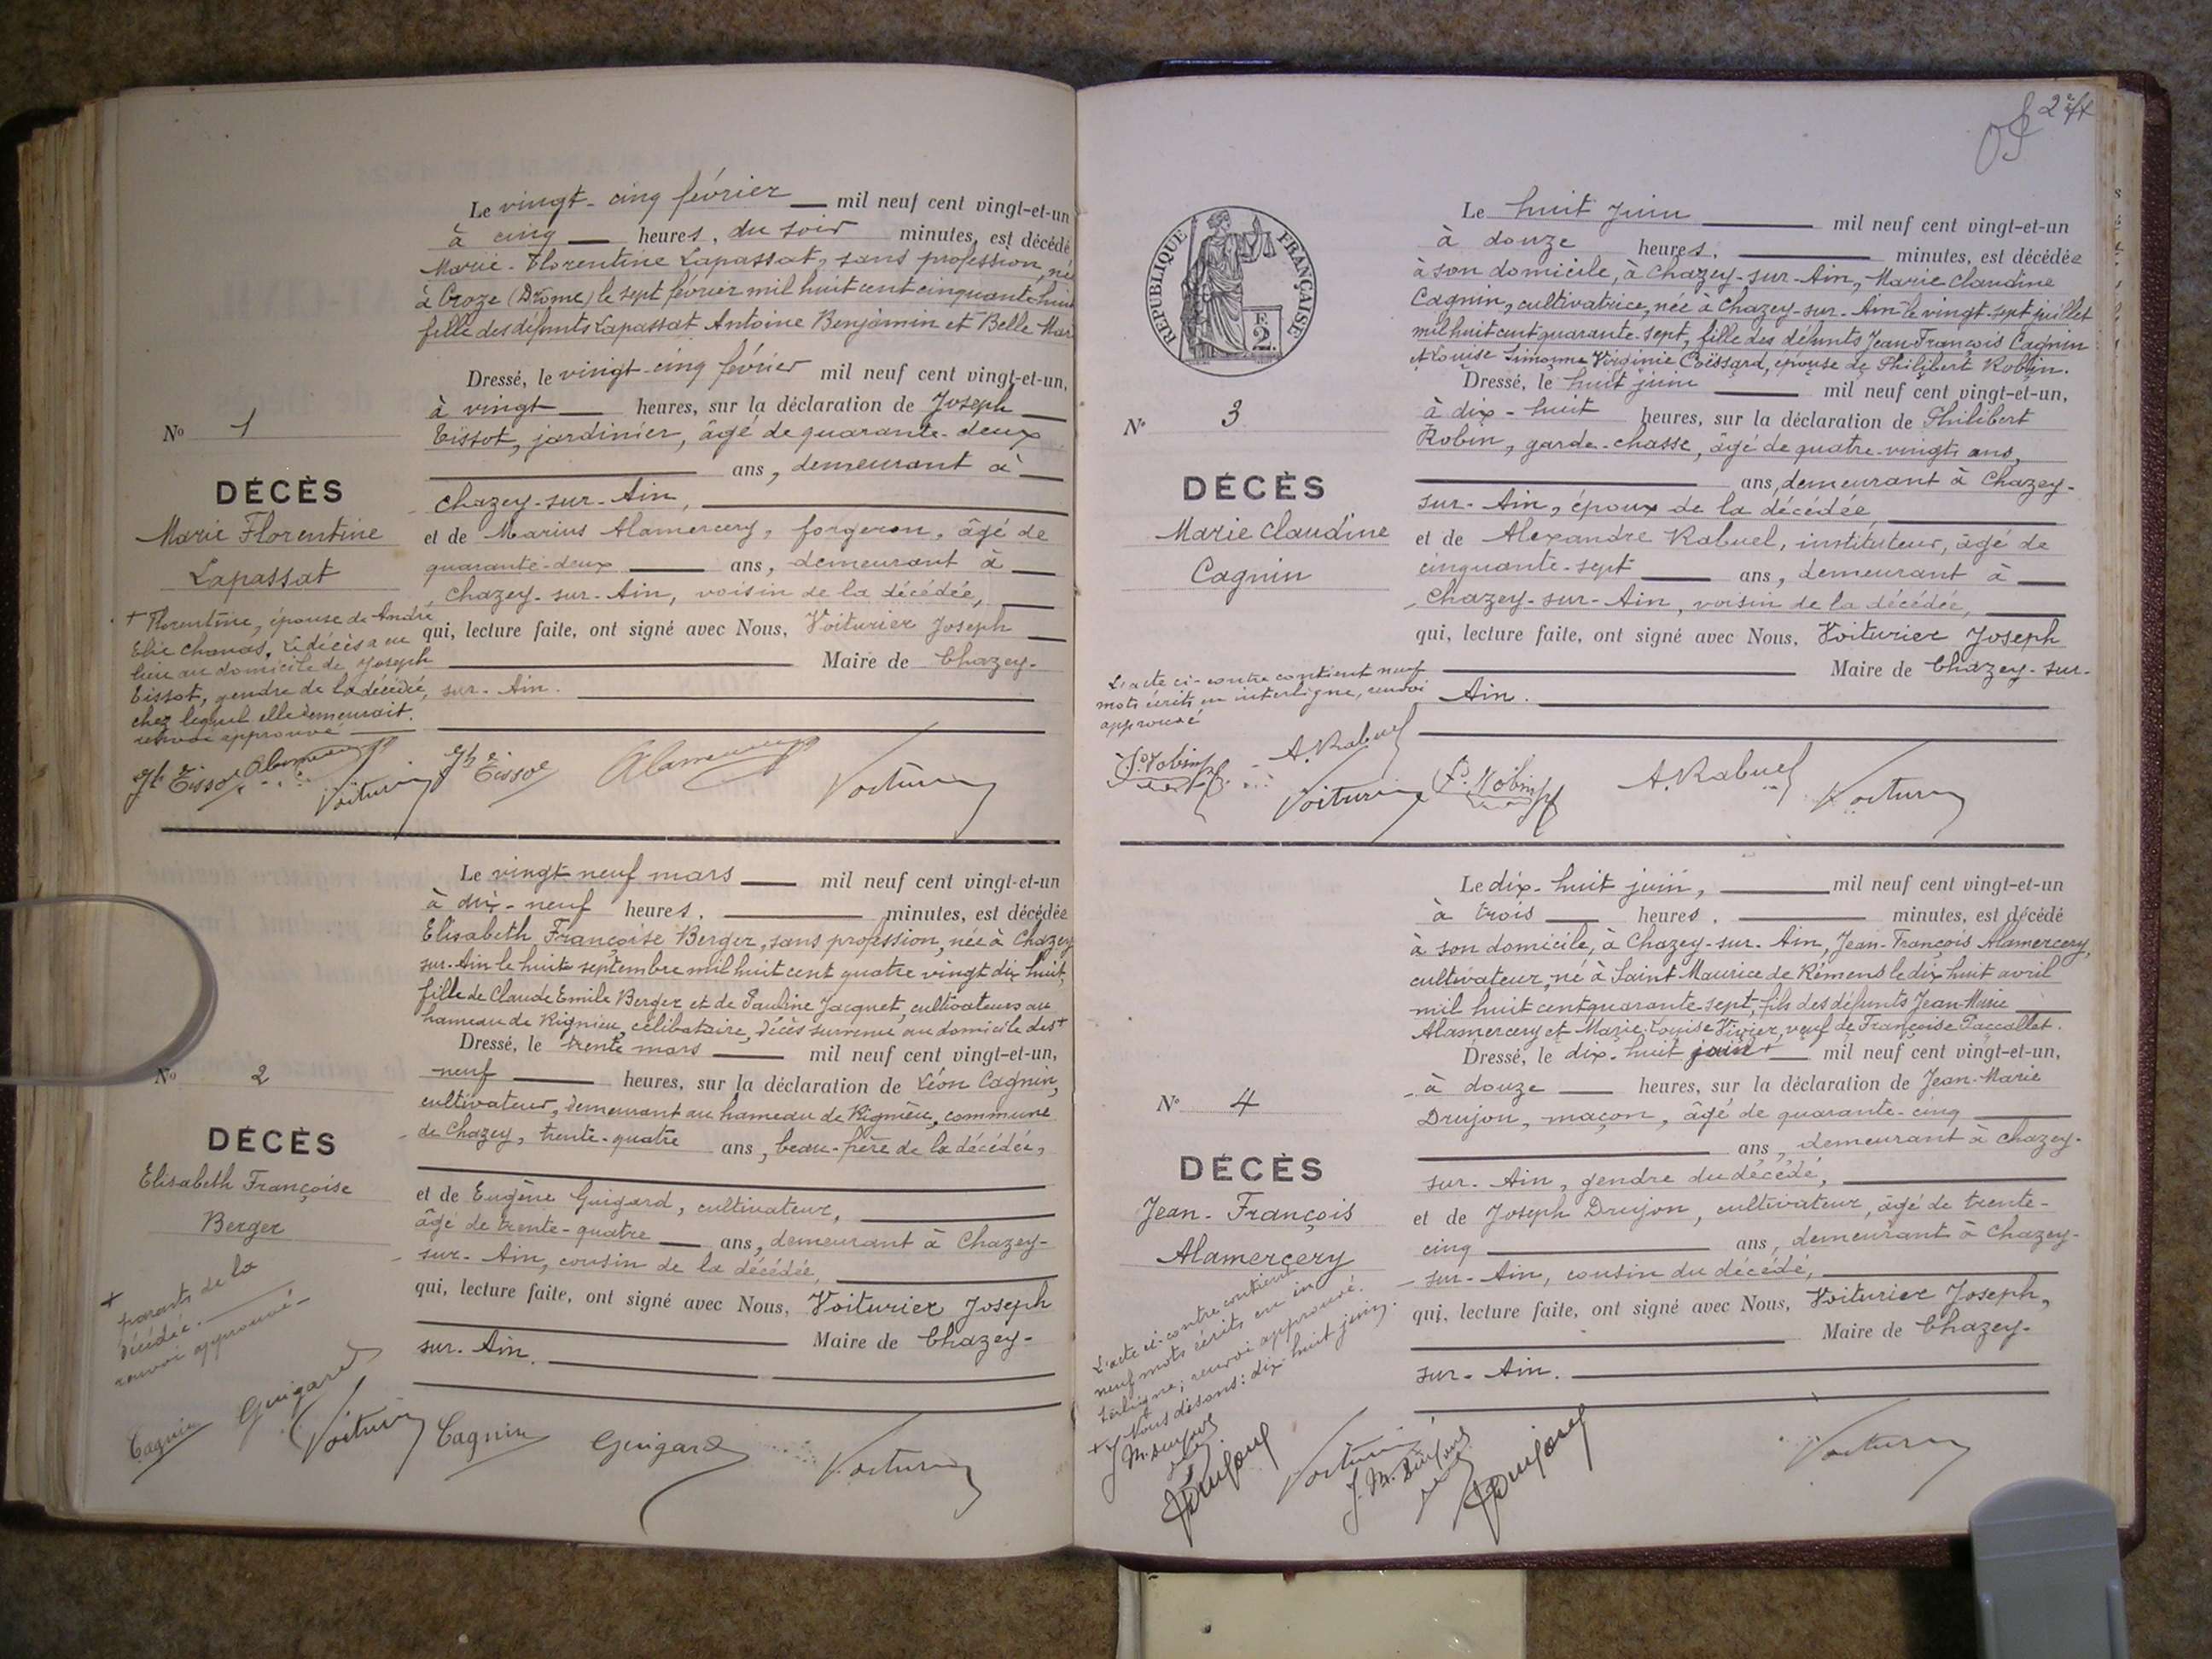 Le vingt-cinq février mil neuf cent vingt-et-un
à cinq heures, du soir minutes, est décédé
Marie-Florentine Lapassat, sans profession, née
à Croze (Drôme) le sept février mil huit cent cinquante huit
fille des défunts Lapassat Antoine Benjamin et Belle Mar
Dressé, le vingt-cinq février mil neuf cent vingt-et-un,
à vingt heures, sur la déclaration de Joseph
Tissot, jardinier, âgé de quarante-deux
ans, demeurant à
Chazey-sur-Ain,
et de Marius Alamercery, forgeron, âgé de
quarante-deux ans, demeurant à
Chazey-sur-Ain, voisin de la décédée,
qui, lecture faite, ont signé avec Nous, Voiturier Joseph
Maire de Chazey-
sur-Ain.
No 1
DÉCÈS
Marie Florentine
Lapassat
+ Florentine, épouse de André
Elie Chanas. Le décès a eu
lieu au domicile de Joseph
Tissot, gendre de la décédée,
chez lequel elle demeurait.
renvoi approuvé
Jh Tissot Alamercery Voiturier
Jh Tissot Alamercery Voiturier
Le vingt neuf mars mil neuf cent vingt-et-un
à dix-neuf heures, minutes, est décédée
Elisabeth Françoise Berger, sans profession, née à Chazey
sur-Ain le huit septembre mil huit cent quatre vingt dix huit,
fille de Claude Emile Berger et de Pauline Jacquet, cultivateurs au
hameau de Rignieu, célibataire, décès survenu au domicile des +
Dressé, le trente mars mil neuf cent vingt-et-un,
neuf heures, sur la déclaration de Léon Cagnin,
cultivateur, demeurant au hameau de Rignieu, commune
de Chazey, trente-quatre ans, beau-frère de la décédée,
et de Eugène Guigard, cultivateur,
âgé de trente-quatre ans, demeurant à Chazey-
sur-Ain, cousin de la décédée,
qui, lecture faite, ont signé avec Nous, Voiturier Joseph
Maire de Chazey-
sur-Ain.
No 2
DÉCÈS
Elisabeth Françoise
Berger
+
parents de la
décédée.
renvoi approuvé
Cagnin Guigard Voiturier
Cagnin Guigard Voiturier
2
RÉPUBLIQUE FRANÇAISE
2
Le huit juin mil neuf cent vingt-et-un
à douze heures, minutes, est décédée
à son domicile, à Chazey-sur-Ain, Marie Claudine
Cagnin, cultivatrice, née à Chazey-sur-Ain le vingt-sept juillet
mil huit cent quarante-sept, fille des défunts Jean-François Cagnin
et Louise Simonne Virginie Coëssard, épouse de Philibert Robin.
Dressé, le huit juin mil neuf cent vingt-et-un,
à dix-huit heures, sur la déclaration de Philibert
Robin, garde-chasse, âgé de quatre-vingts ans,
ans, demeurant à Chazey-
sur-Ain, époux de la décédée
et de Alexandre Rabuel, instituteur, âgé de
cinquante-sept ans, demeurant à
Chazey-sur-Ain, voisin de la décédée,
qui, lecture faite, ont signé avec Nous, Voiturier Joseph
Maire de Chazey-sur-
Ain.
No 3
DÉCÈS
Marie Claudine
Cagnin
L'acte ci-contre contient neuf
mots écrits en interligne, renvoi
approuvé
P. Robin A. Rabuel Voiturier
P. Robin A. Rabuel Voiturier
Le dix-huit juin, mil neuf cent vingt-et-un
à trois heures, minutes, est décédé
à son domicile, à Chazey-sur-Ain, Jean-François Alamercery,
cultivateur, né à Saint Maurice de Rémens le dix huit avril
mil huit cent quarante-sept, fils des défunts Jean-Marie
Alamercery et Marie-Louise Vivier, veuf de Françoise Paccallet.
Dressé, le dix-huit juin + mil neuf cent vingt-et-un,
à douze heures, sur la déclaration de Jean-Marie
Drujon, maçon, âgé de quarante-cinq
ans, demeurant à Chazey-
sur-Ain, gendre du décédé,
et de Joseph Drujon, cultivateur, âgé de trente-
cinq ans, demeurant à Chazey-
sur-Ain, cousin du décédé,
qui, lecture faite, ont signé avec Nous, Voiturier Joseph,
Maire de Chazey-
sur-Ain.
No 4
DÉCÈS
Jean-François
Alamercery
L'acte ci-contre contient
neuf mots écrits en in
terligne; renvoi approuvé.
+ Nous disons: dix-huit juin.
J. M. Drujon
Drujon Voiturier
J. M. Drujon Drujon Voiturier